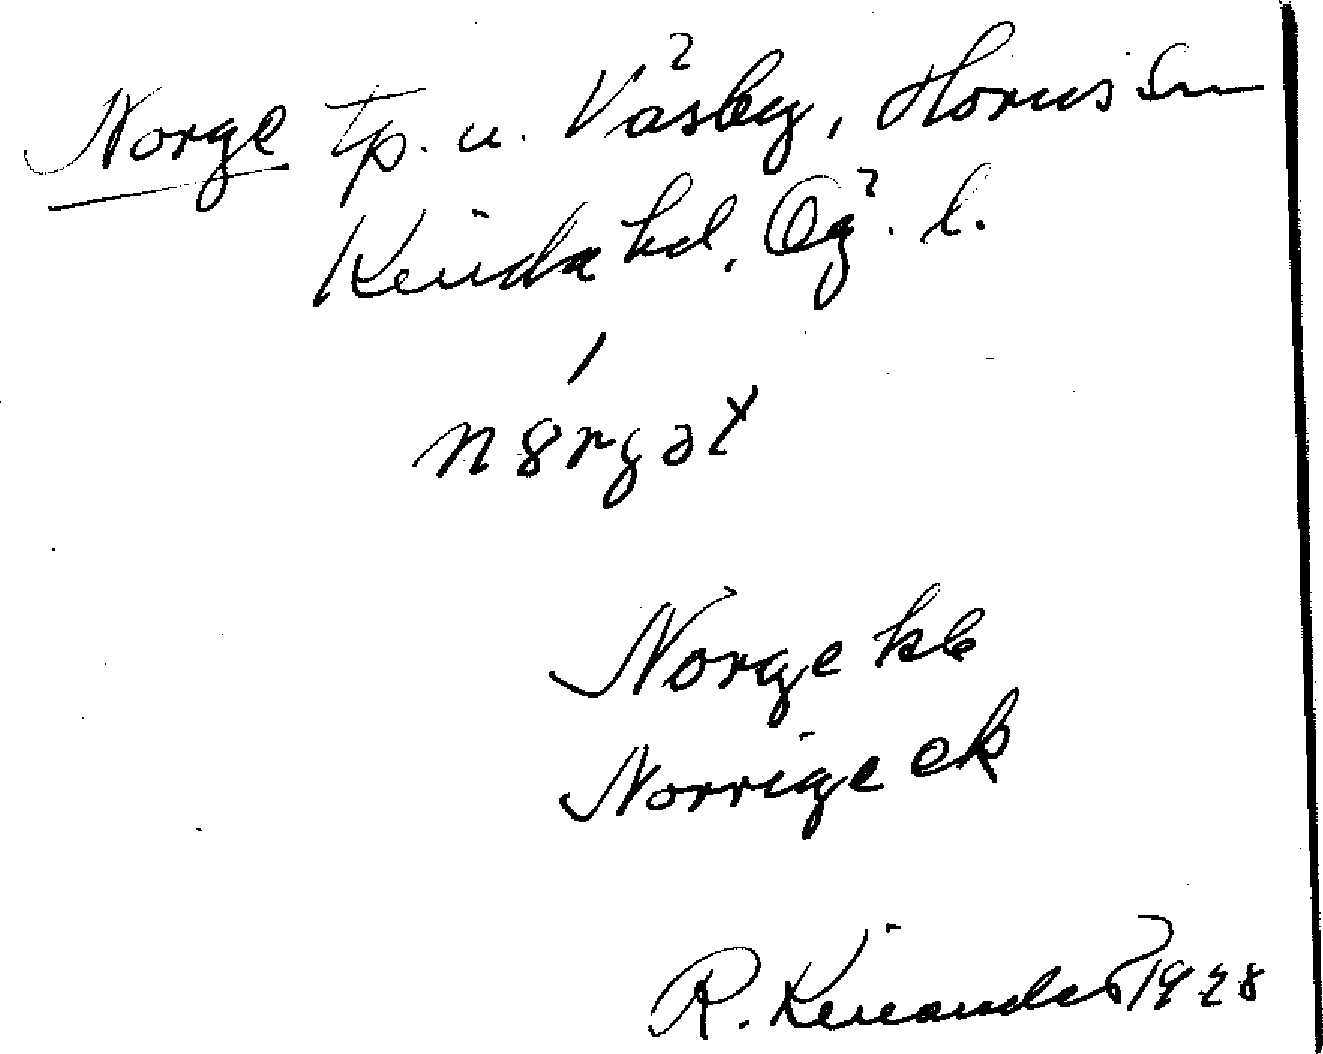 Norge tp. u. Väsby, Horns sn
Kinda hd, Ög. l.
n8rgət
Norge kb
Norrige ek
R. Kinander 1928